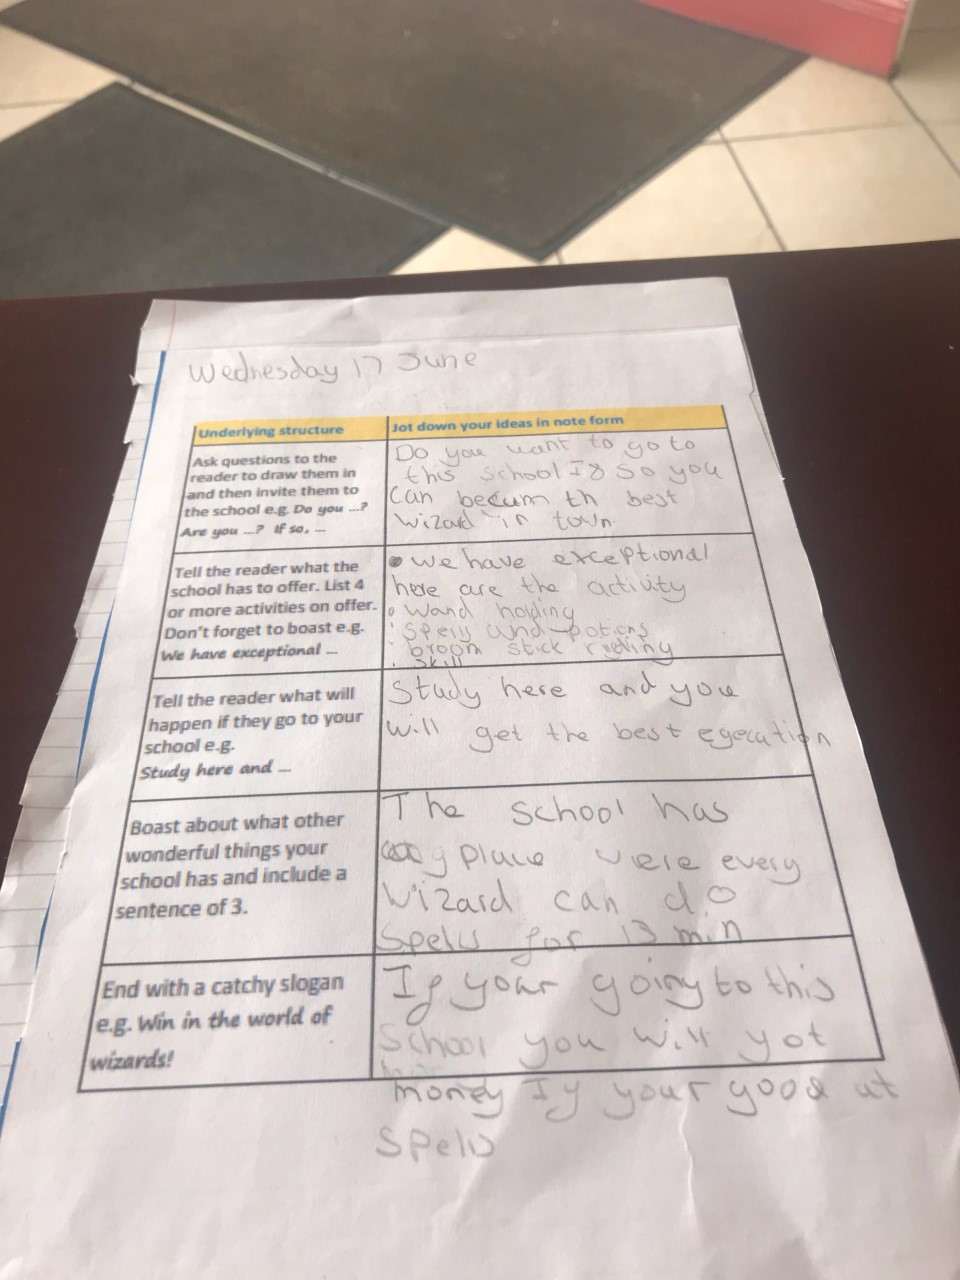 Wednesday 17 June
Underlying structure
Jot down your ideas in note form
Ask questions to the
reader to draw them in
and then invite them to
the school e.g. Do you ...?
Are you ...? If so, ...
Do you want to go to
this school If so you
Can becum th best
Wizard in town
Tell the reader what the
school has to offer. List 4
or more activities on offer.
Don't forget to boast e.g.
We have exceptional ...
We have exceptional
here are the activity
Wand holding
Spells and potions
broom stick
Skill
Tell the reader what will
happen if they go to your
school e.g.
Study here and ...
Study here and you
will get the best egecation
Boast about what other
wonderful things your
school has and include a
sentence of 3.
The school has
place were every
Wizard can do
Spells for 13 min
End with a catchy slogan
e.g. Win in the world of
wizards!
If your going to this
School you will got
money If your good at
Spells